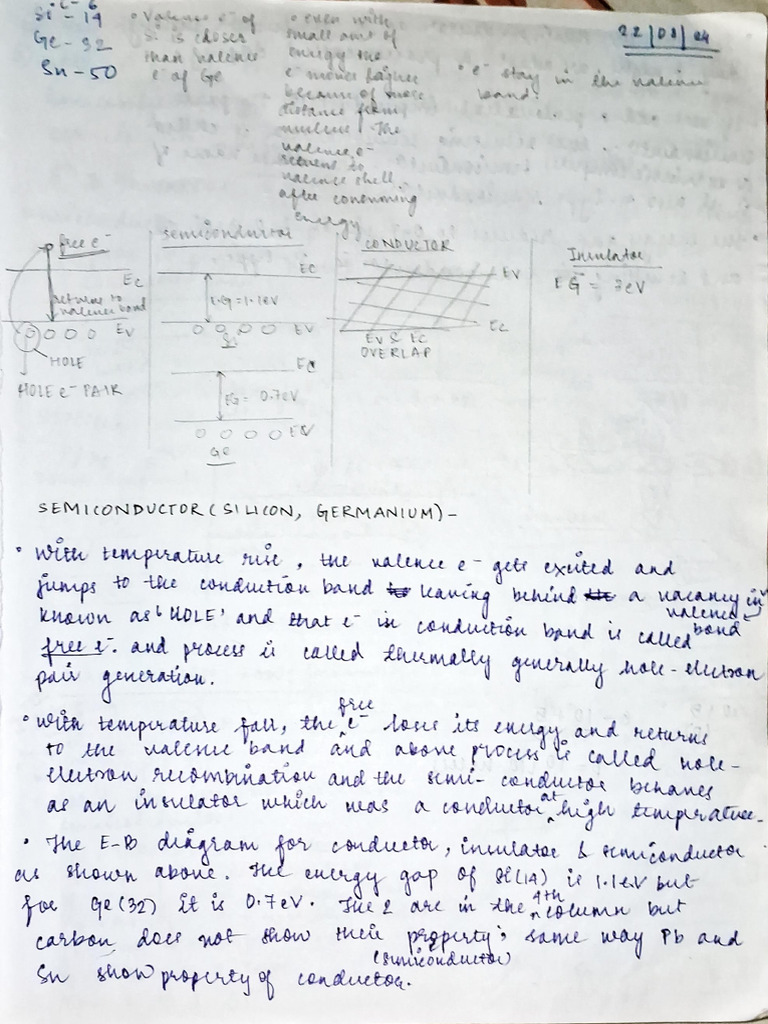 C - 6
Si - 14
Ge - 32
Sn - 50
• Valence e⁻ of
Si is closer
than valence
e⁻ of Ge
• even with
small amt of
energy the
e⁻ moves higher
because of more
distance from
nucleus. The
valence e⁻
returns to
valence shell
after consuming
energy
22/08/24
• e⁻ stay in the valence
band.
free e⁻
EC
returns to
valence band
EV
HOLE
HOLE e⁻ PAIR
SEMICONDUCTOR
EC
EG = 1.1eV
EV
Si
EC
EG = 0.7eV
EV
Ge
CONDUCTOR
EV
EC
EV & EC
OVERLAP
Insulator
EG = 3eV
SEMICONDUCTOR (SILICON, GERMANIUM) -
• With temperature rise, the valence e⁻ gets excited and
jumps to the conduction band leaving behind a vacancy in valence band
known as 'HOLE' and that e⁻ in conduction band is called
free e⁻. and process is called thermally generally hole-electron
pair generation.
• With temperature fall, the free e⁻ lose its energy and returns
to the valence band and above process is called hole-
electron recombination and the semi-conductor behaves
as an insulator which was a conductor at high temperature.
• The E-B diagram for conductor, insulator & semiconductor
as shown above. The energy gap of Si(14) is 1.1eV but
for Ge(32) it is 0.7eV. The 2 are in the 4th column but
carbon does not show their property (semiconductor); same way Pb and
Sn show property of conductor.